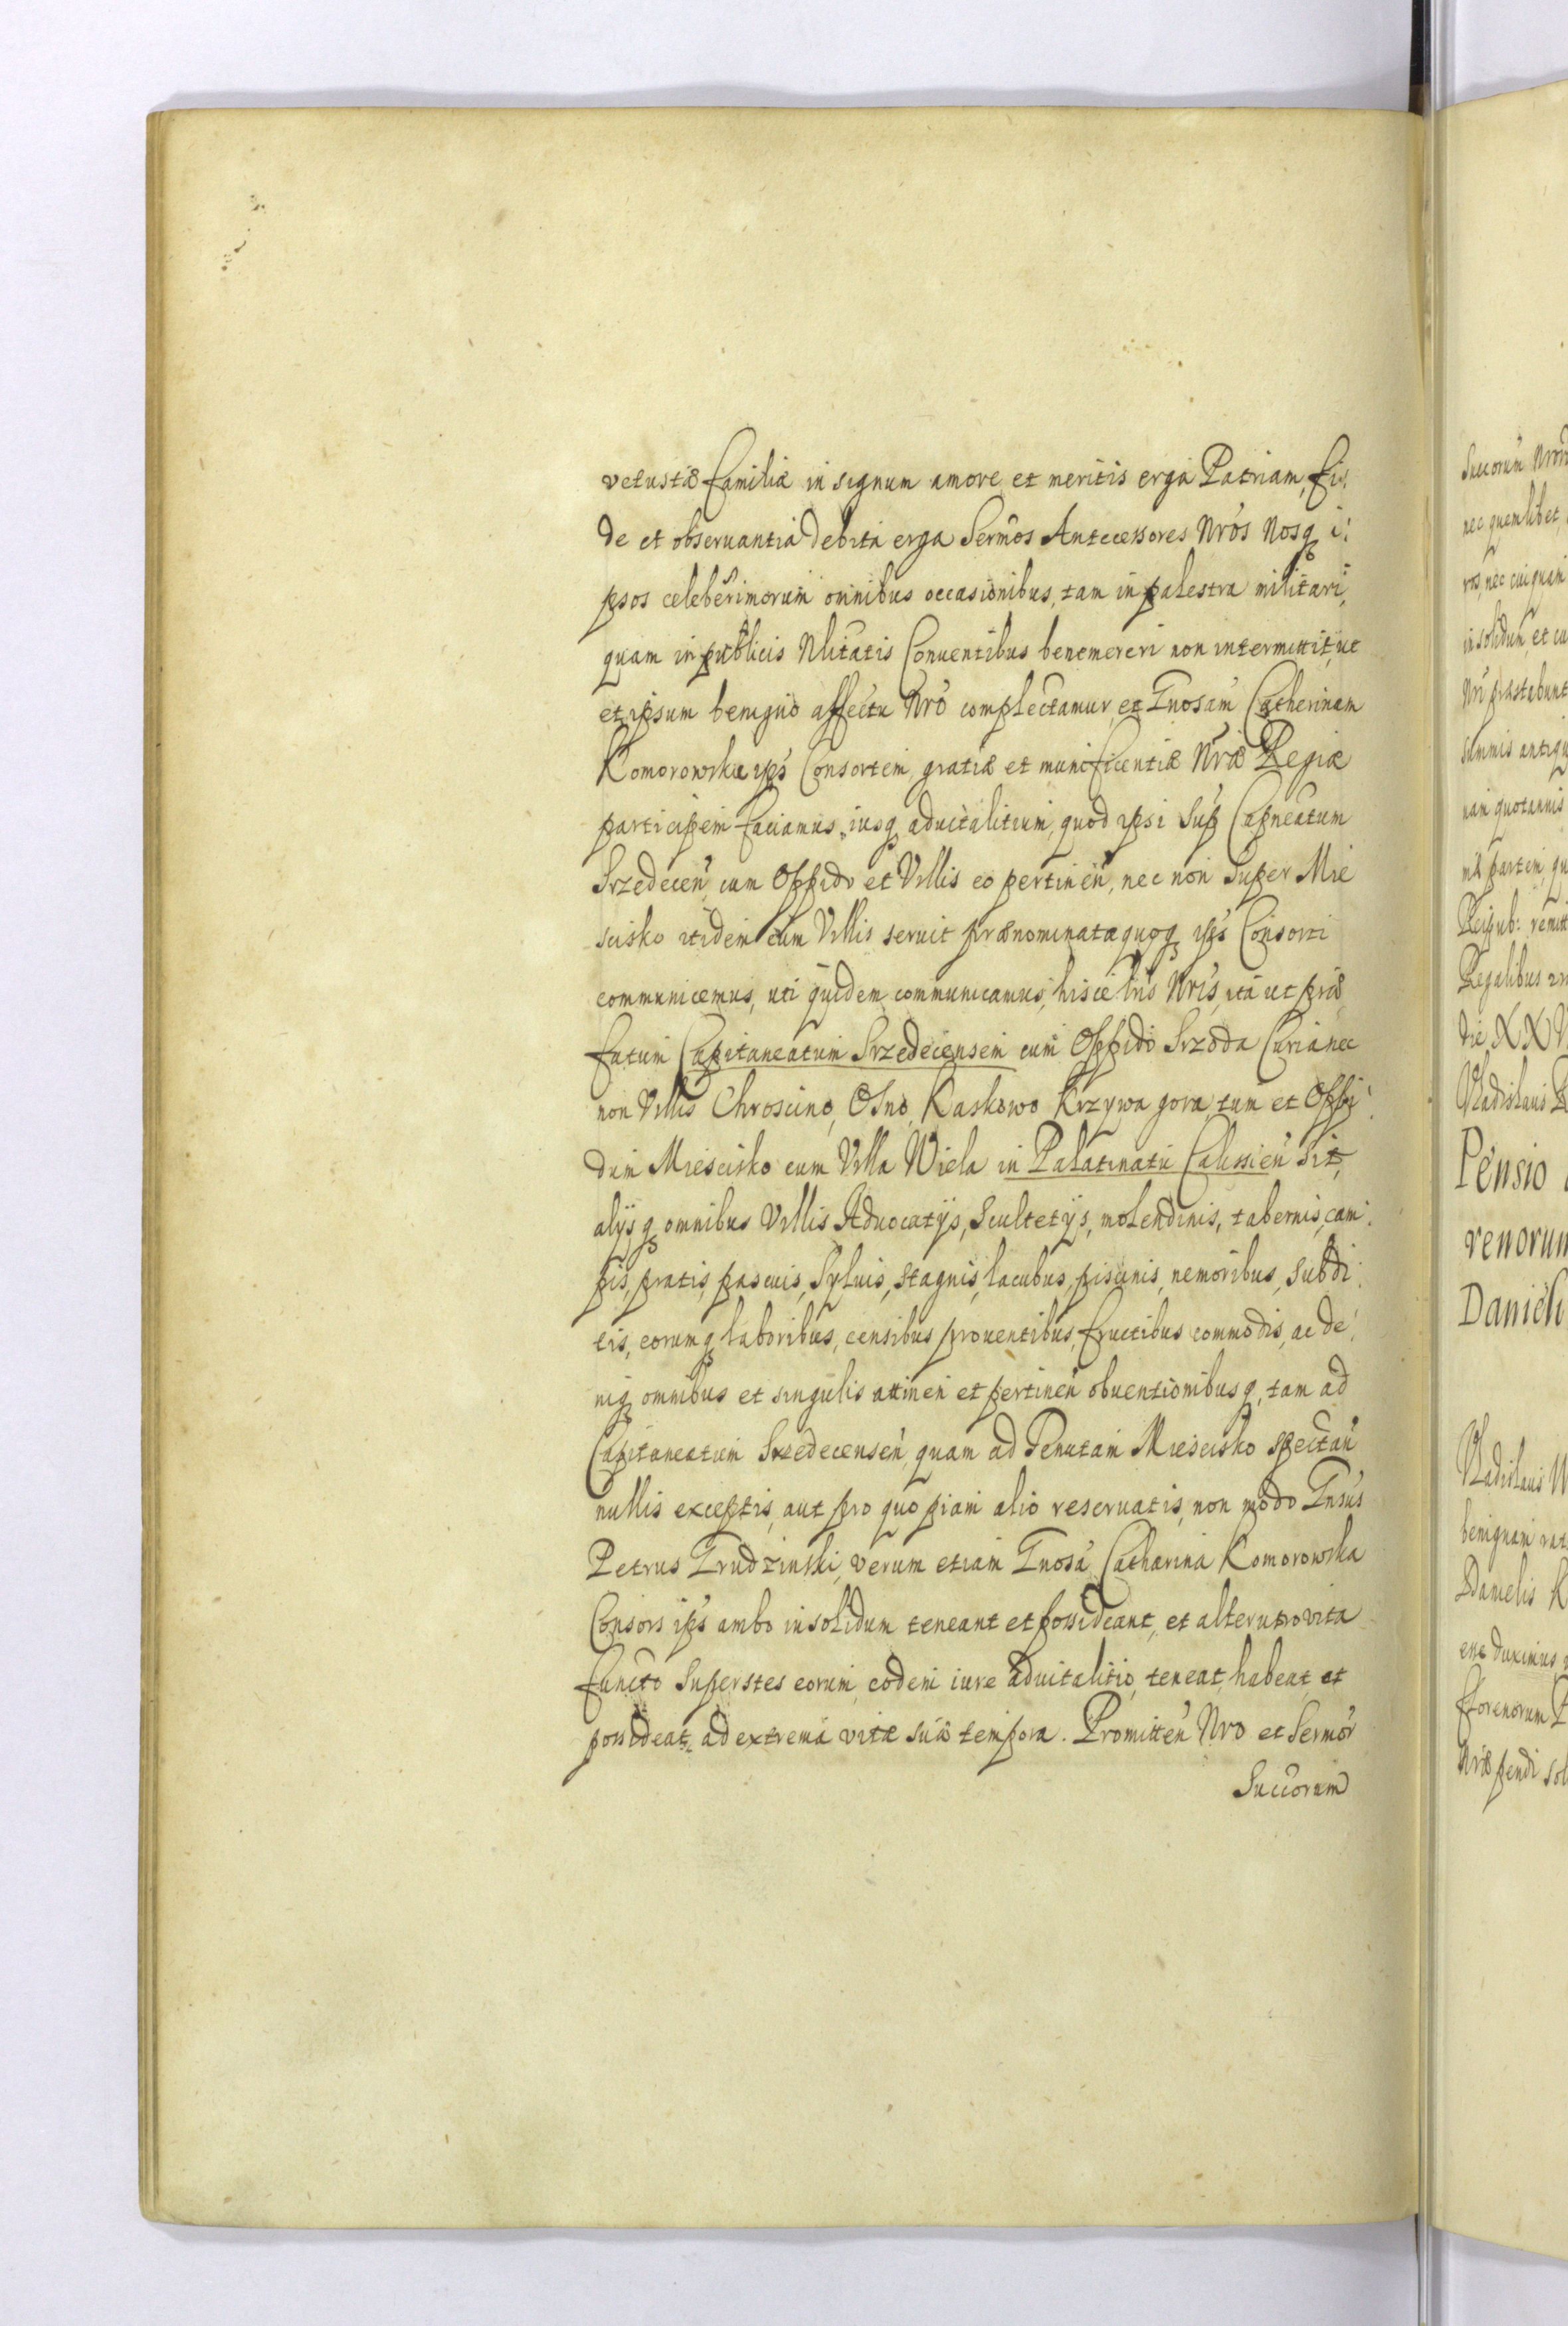 vetustæ familiæ in signum amore et meritis erga Patriam, fi:
de et obseruantia debita erga Sermos Antecessores Nros Nosq i:
psos celeberimorum omnibus occasionibus, tam in palestra militari,
quam in publicis Nlitatis Conuentibus benemereri non intermittit, ut
et ipsum benigno affectu Nro complectamur, et Gnosam Catherinam
Komorowska ips Consortem, gratiæ et munificentiæ Nræ Regiæ
participem faciamus, iusq aduitalitium, quod ipsi Sup Capneatum
Srzedecen cum Oppido et Villis eo pertinen, nec non Super Mie
scisko itidem cum Villis seruit prænominatæ quoq ips Consorti
communicemus, uti quidem communicamus, hisce lris Nris, ita ut præ
fatum Capitaneatum Srzedecensem cum Oppido Srzoda Curia nec
non Villis Chroscino, Osno, Kaskowo Krzywa gora, tum et Oppi
dum Miescisko cum Villa Wiela in Palatinatu Calissien sit,
alijsq omnibus Villis Aduocatijs, Scultetijs, molendinis, tabernis, cam:
pis, pratis, pascuis, Syluis, stagnis, lacubus, piscinis, nemoribus, subdi:
tis, eorumq laboribus, censibus prouentibus, fructibus commodis, ac de:
niq omnibus et singulis attinen et pertinen obuentionibusq, tam ad
Capitaneatum Srzedecensen, quam ad Tenutam Miescisko spectan
nullis exceptis, aut pro quo piam alio reseruatis, non modo Gnsus
Petrus Trudzinski, verum etiam Gnosa Catharina Komorowska
Consors ips ambo insolidum teneant et possideant, et alterutro vita
functo Superstes eorum, eodem iure aduitalitio, teneat, habeat et
possideat, ad extrema vitæ suæ tempora. Promitten Nro et Sermor
Succorum
Succorum
nec quemlibet
ros, nec cuiquam
in solidum, et
Nri præstabunt
summis
nam quotannis
partem
Reipub: remitt
Regalibus
die XXV
Vladislaus
Pensio
renorum
Danieli
Vladislaus
benignam
Danielis K
esse duximus
fforenorum P
Nræ pendi